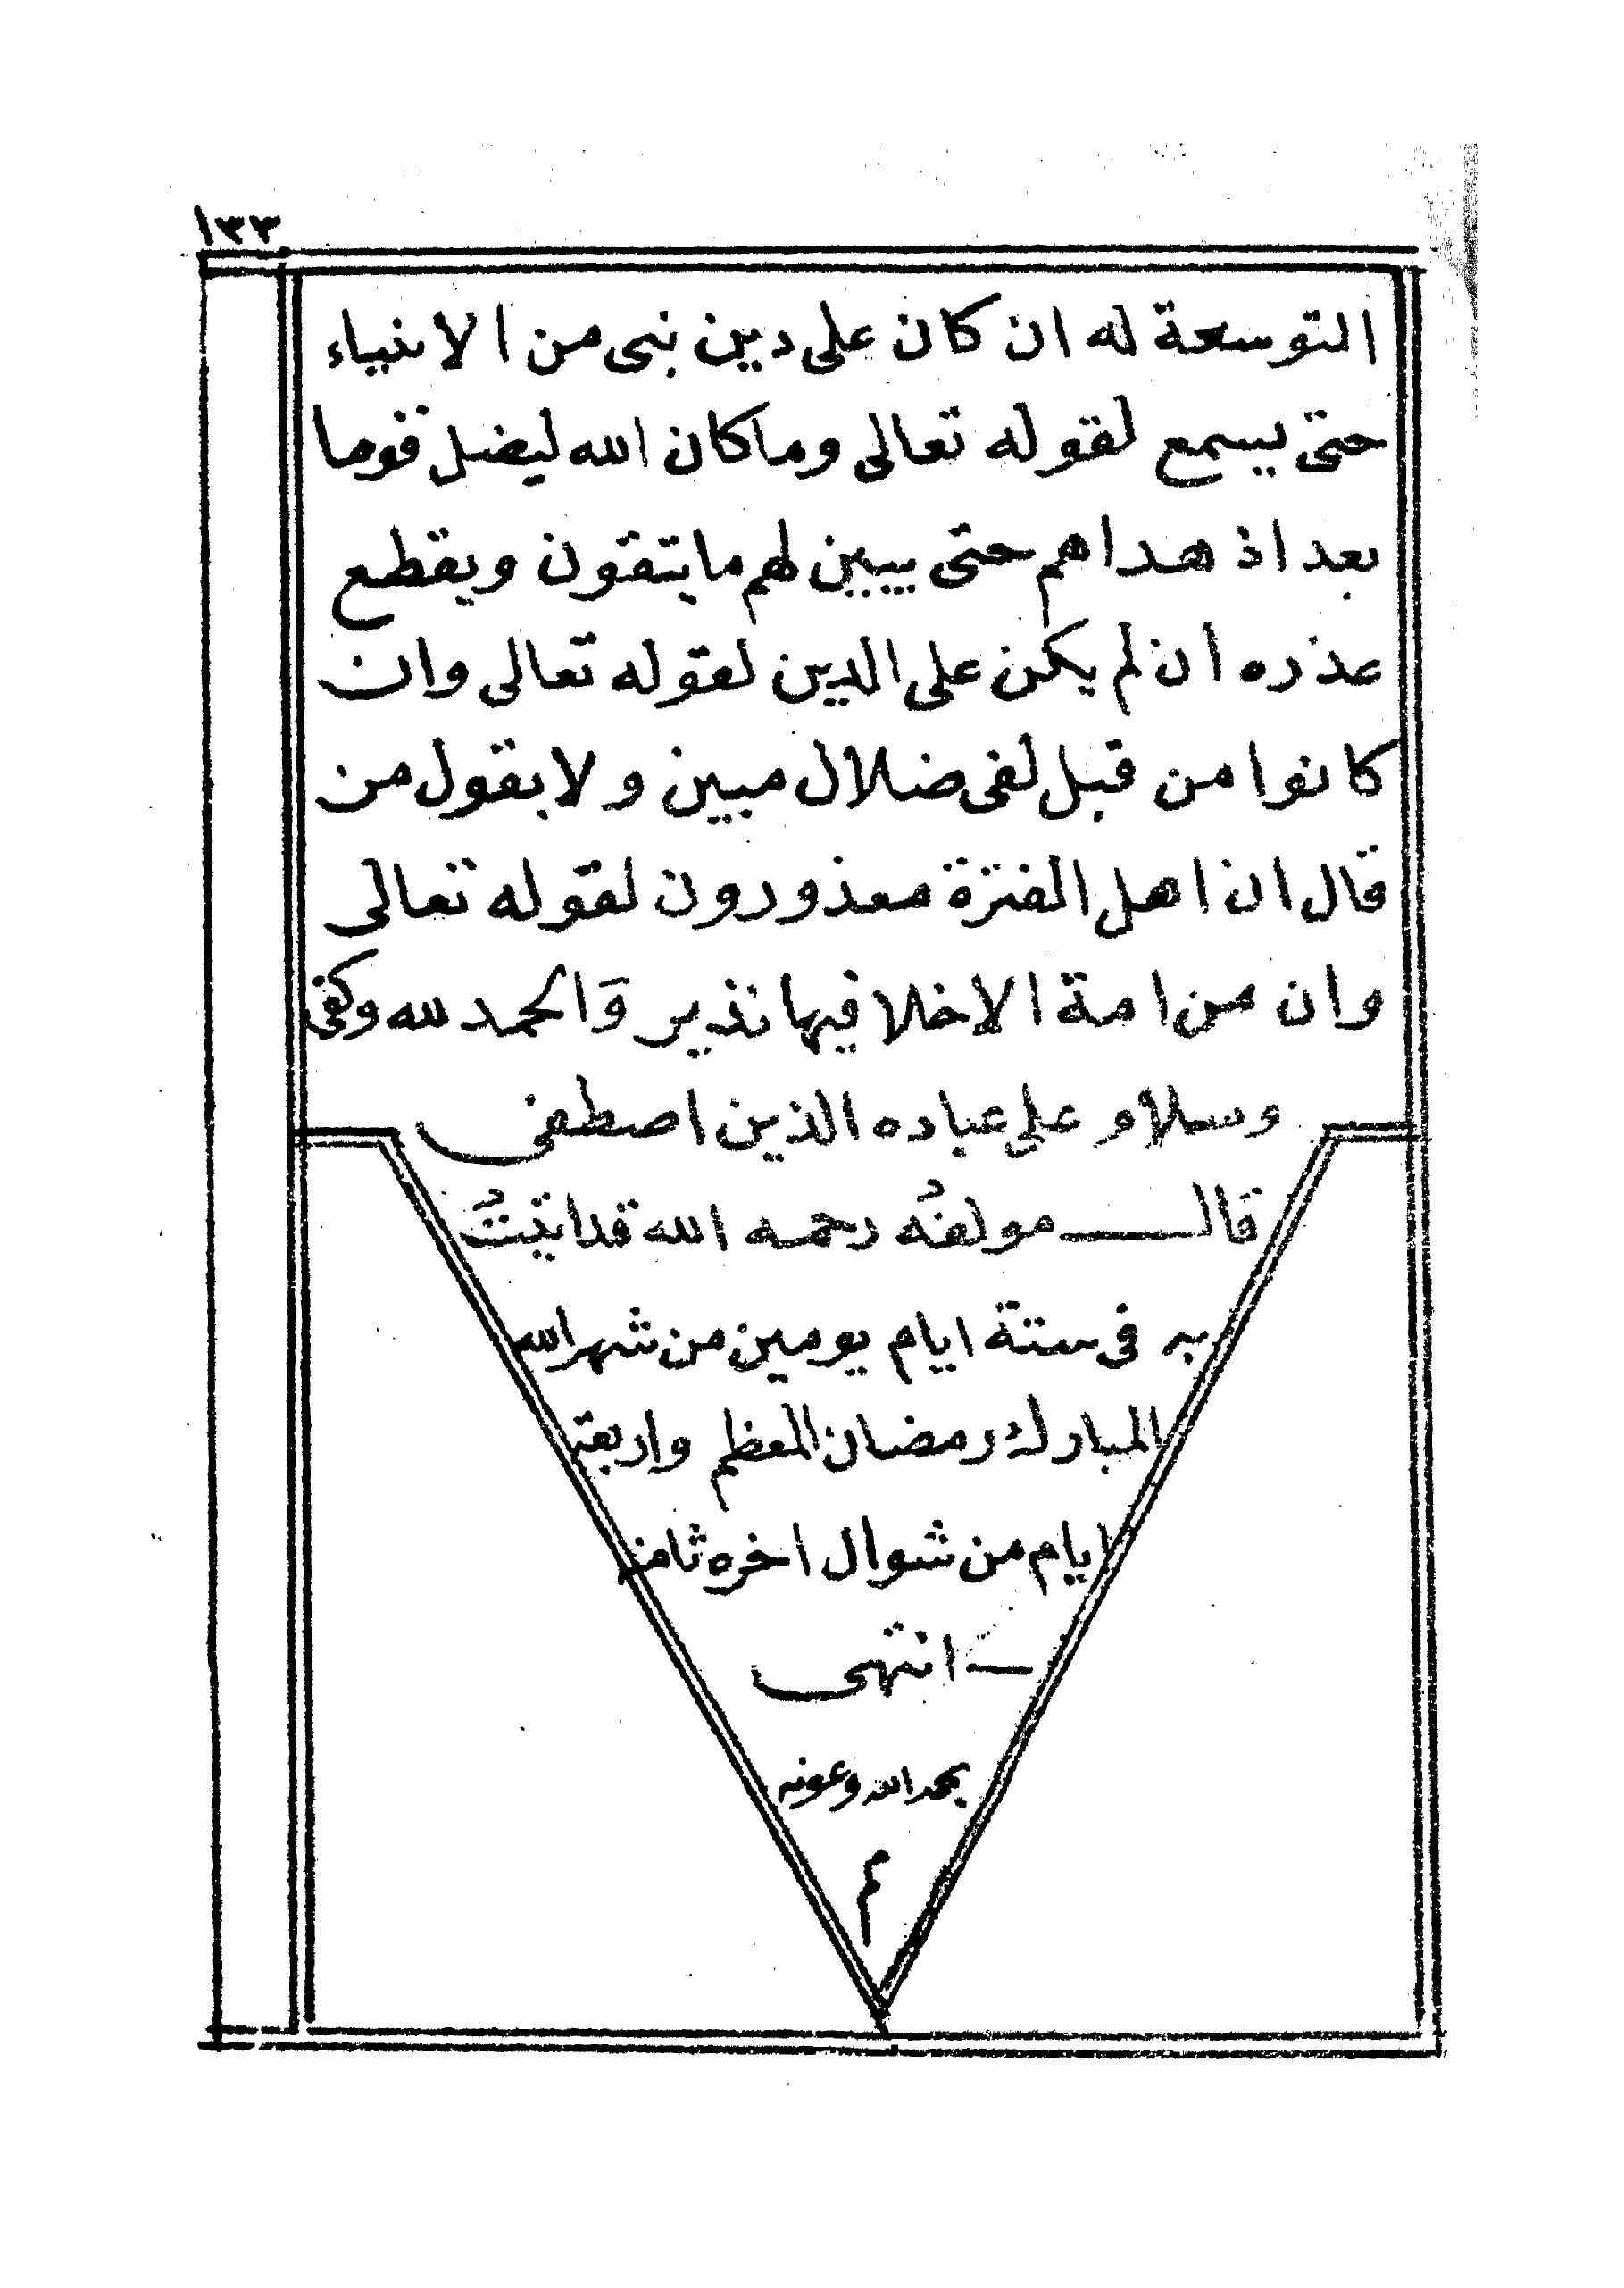 ١٣٣
التوسعة له ان كان على دين نبى من الانبياء
حتى يسمع لقوله تعالى وما كان الله ليضل قوما
بعد اذ هداهم حتى يبين لهم ما يتقون ويقطع
عذره ان لم يكن على الدين لقوله تعالى وان
كانوا من قبل لفى ضلال مبين ولا بقول من
قال ان اهل الفترة معذورون لقوله تعالى
وان من امة الاخلا فيها نذير وَالحمد لله وكفى
وسلام على عباده الذين اصطفى
قال مولفهُ رحمه الله قد اتيتُ
به فى ستة ايام يومين من شهر الله
المبارك رمضان المعظم واربعة
ايام من شوال اخره ثامنه
انتهى
بحمد الله وعونه
م